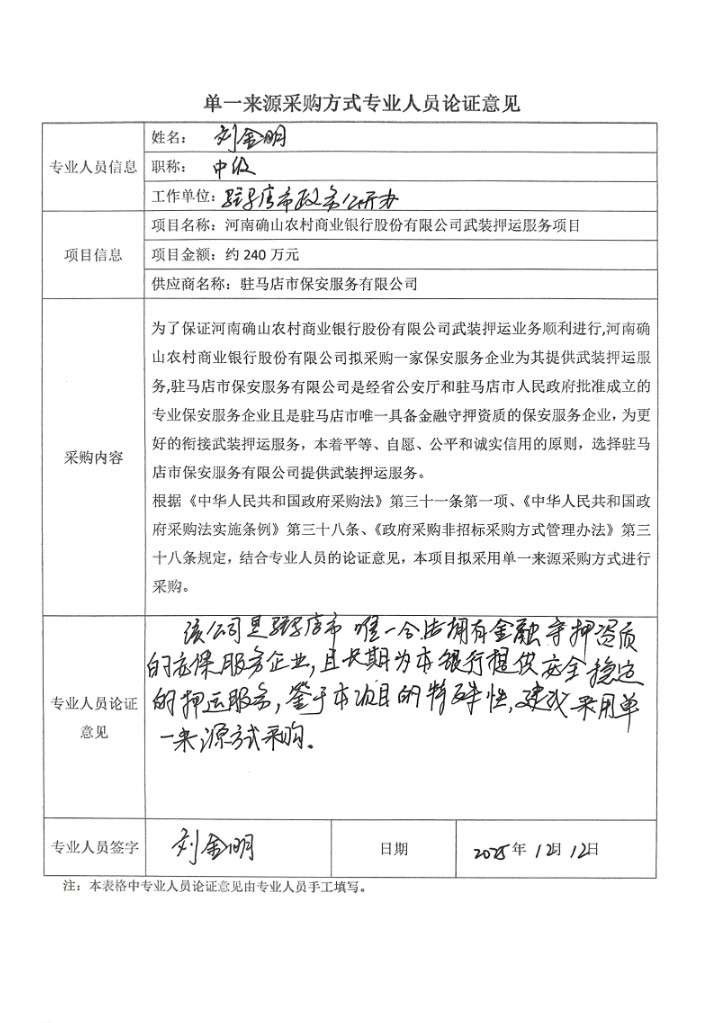 单一来源采购方式专业人员论证意见
专业人员信息
姓名：刘金明
职称：中级
工作单位：驻马店市政务公开办
项目信息
项目名称：河南确山农村商业银行股份有限公司武装押运服务项目
项目金额：约 240 万元
供应商名称：驻马店市保安服务有限公司
采购内容
为了保证河南确山农村商业银行股份有限公司武装押运业务顺利进行,河南确
山农村商业银行股份有限公司拟采购一家保安服务企业为其提供武装押运服
务,驻马店市保安服务有限公司是经省公安厅和驻马店市人民政府批准成立的
专业保安服务企业且是驻马店市唯一具备金融守押资质的保安服务企业，为更
好的衔接武装押运服务，本着平等、自愿、公平和诚实信用的原则，选择驻马
店市保安服务有限公司提供武装押运服务。
根据《中华人民共和国政府采购法》第三十一条第一项、《中华人民共和国政
府采购法实施条例》第三十八条、《政府采购非招标采购方式管理办法》第三
十八条规定，结合专业人员的论证意见，本项目拟采用单一来源采购方式进行
采购。
专业人员论证
意见
该公司是驻马店市唯一合法拥有金融守押资质
的安保服务企业，且长期为本银行提供安全稳定
的押运服务，鉴于本项目的特殊性，建议采用单
一来源方式采购。
专业人员签字
刘金明
日期
2025年12月12日
注：本表格中专业人员论证意见由专业人员手工填写。